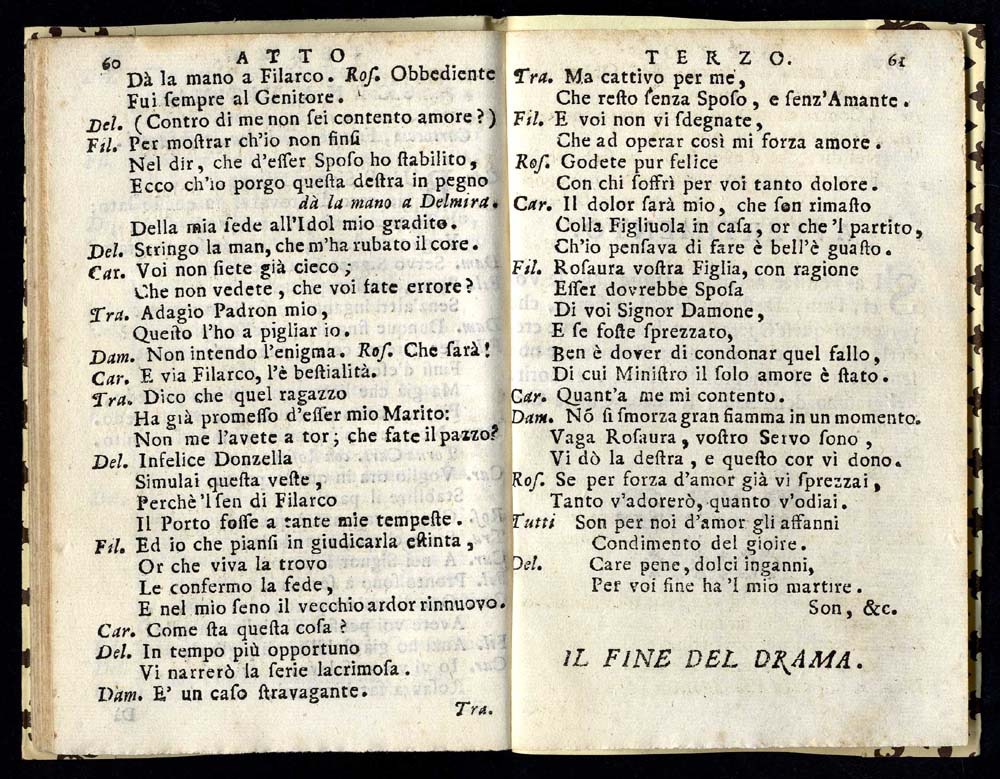 60 ATTO
Dà la mano a Filarco. Roſ. Obbediente
Fui ſempre al Genitore.
Del. (Contro di me non ſei contento amore?)
Fil. Per moſtrar ch'io non finſi
Nel dir, che d'eſſer Spoſo ho ſtabilito,
Ecco ch'io porgo queſta deſtra in pegno
dà la mano a Delmira.
Della mia fede all'Idol mio gradito.
Del. Stringo la man, che m'ha rubato il core.
Car. Voi non ſiete già cieco;
Che non vedete, che voi fate errore?
Tra. Adagio Padron mio,
Queſto l'ho a pigliar io.
Dam. Non intendo l'enigma. Roſ. Che ſarà!
Car. E via Filarco, l'è beſtialità.
Tra. Dico che quel ragazzo
Ha già promeſſo d'eſſer mio Marito:
Non me l'avete a tor; che fate il pazzo?
Del. Infelice Donzella
Simulai queſta veſte,
Perchè 'l ſen di Filarco
Il Porto foſſe a tante mie tempeſte.
Fil. Ed io che pianſi in giudicarla eſtinta,
Or che viva la trovo
Le confermo la fede,
E nel mio ſeno il vecchio ardor rinnuovo.
Car. Come ſta queſta coſa?
Del. In tempo più opportuno
Vi narrerò la ſerie lacrimoſa.
Dam. E' un caſo ſtravagante.
Tra.
TERZO. 61
Tra. Ma cattivo per me,
Che reſto ſenza Spoſo, e ſenz'Amante.
Fil. E voi non vi ſdegnate,
Che ad operar così mi forza amore.
Roſ. Godete pur felice
Con chi ſoffrì per voi tanto dolore.
Car. Il dolor ſarà mio, che ſon rimaſto
Colla Figliuola in caſa, or che 'l partito,
Ch'io penſava di fare è bell'è guaſto.
Fil. Roſaura voſtra Figlia, con ragione
Eſſer dovrebbe Spoſa
Di voi Signor Damone,
E ſe foſte ſprezzato,
Ben è dover di condonar quel fallo,
Di cui Miniſtro il ſolo amore è ſtato.
Car. Quant'a me mi contento.
Dam. Nõ ſi ſmorza gran fiamma in un momento.
Vaga Roſaura, voſtro Servo ſono,
Vi dò la deſtra, e queſto cor vi dono.
Roſ. Se per forza d'amor già vi ſprezzai,
Tanto v'adorerò, quanto v'odiai.
Tutti Son per noi d'amor gli affanni
Condimento del gioire.
Del. Care pene, dolci inganni,
Per voi fine ha 'l mio martire.
Son, &c.
IL FINE DEL DRAMA.